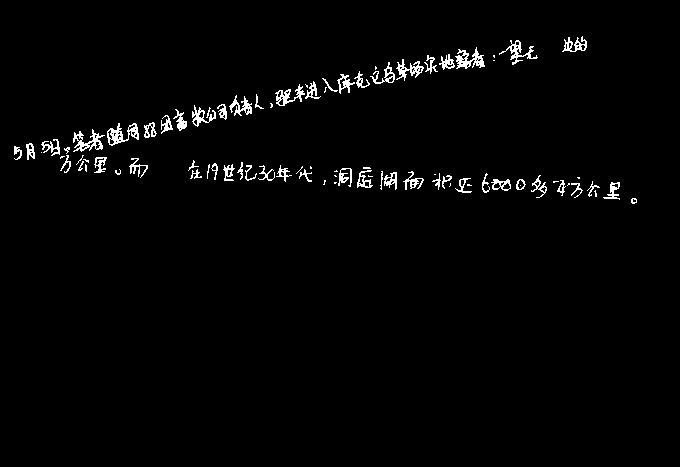 5月5日。笔者随同88团畜牧公司负责人,驱车进入库克它乌草场实地察看:一望无 边的
方公里。而 在19世纪30年代,洞庭湖面积还6000多平方公里。